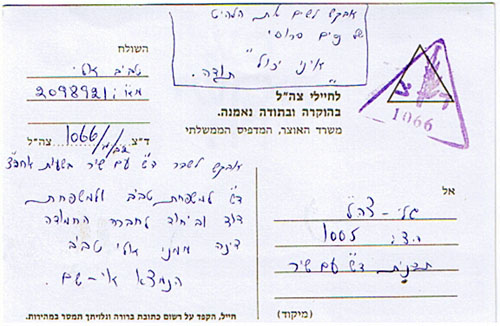 אבקש לשים את הלהיט
של פוים סרוסי
"איני יכול" תודה.
השולח
טביב אלי
מ"א: 2098921
ד"צ 1066/מ/22 צה"ל
לחיילי צה"ל
בהוקרה ובתודה נאמנה.
משרד האוצר, המדפיס הממשלתי
1066
אבקש לשדר ד"ש עם שיר בשעות אחה"צ
ד"ש למשפחת טביב ולמשפחת
דוד וביחוד לחברה החמודה
דינה ממני אלי טביב
הנמצא אי-שם.
אל
גלי-צהל
ד.צ: 1005
תכנית ד"ש עם שיר
(מיקוד)
חייל, הקפד על רשום כתובת ברורה וגלויתך תמסר במהירות.